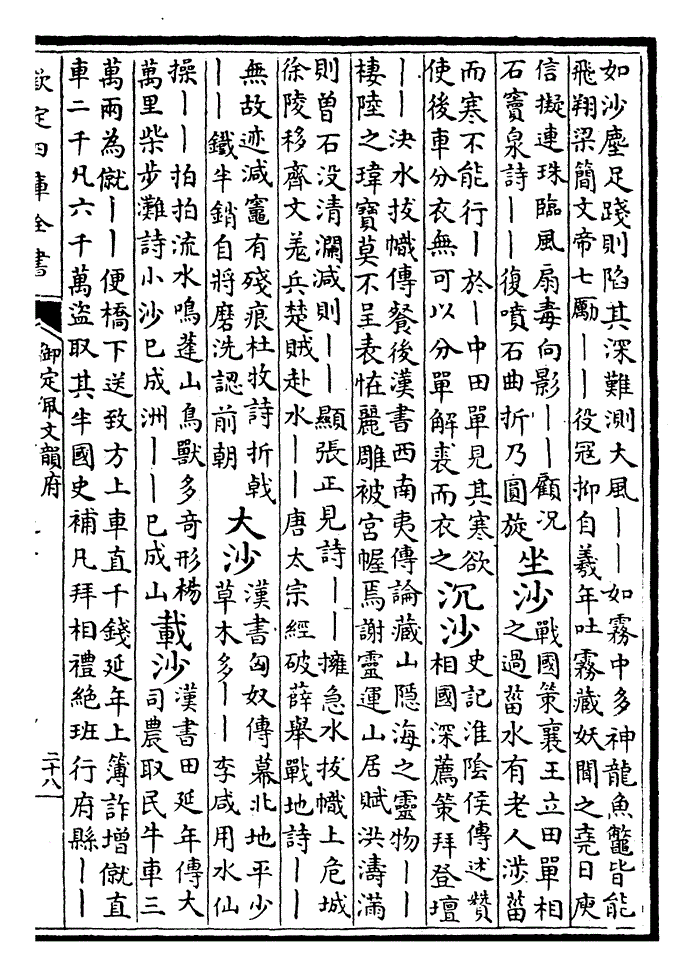 如沙塵足踐則陷其深難測大風||如霧中多神龍魚鼈皆能
飛翔梁簡文帝七勵||役冦抑自羲年吐霧藏妖間之堯日庾
信擬連珠臨風扇毒向影||顧况
石竇泉詩||復噴石曲折乃圓旋
坐沙
戰國策襄王立田單相
之過菑水有老人涉菑
而寒不能行|於|中田單見其寒欲
使後車分衣無可以分單解裘而衣之
沉沙
史記淮陰侯傳述贊
相國深薦策拜登壇
||決水拔幟傳餐後漢書西南夷傳論藏山隠海之靈物||
棲陸之瑋寶莫不呈表怪麗雕被宮幄焉謝靈運山居賦洪濤滿
則曽石没清瀾减則||顯張正見詩||擁急水拔幟上危城
徐陵移齊文羗兵楚賊赴水||唐太宗經破薛舉戰地詩||
無故迹減竈有殘痕杜牧詩折戟
||鐵半銷自將磨洗認前朝
大沙
漢書匈奴傳幕北地平少
草木多||李咸用水仙
操||拍拍流水鳴蓬山鳥獸多奇形楊
萬里柴步灘詩小沙已成洲||已成山
載沙
漢書田延年傳大
司農取民牛車三
萬兩為僦||便橋下送致方上車直千錢延年上簿詐增僦直
車二千凡六千萬盜取其半國史補凡拜相禮絕班行府縣||
欽定四庫全書
御定佩文韻府
二十八